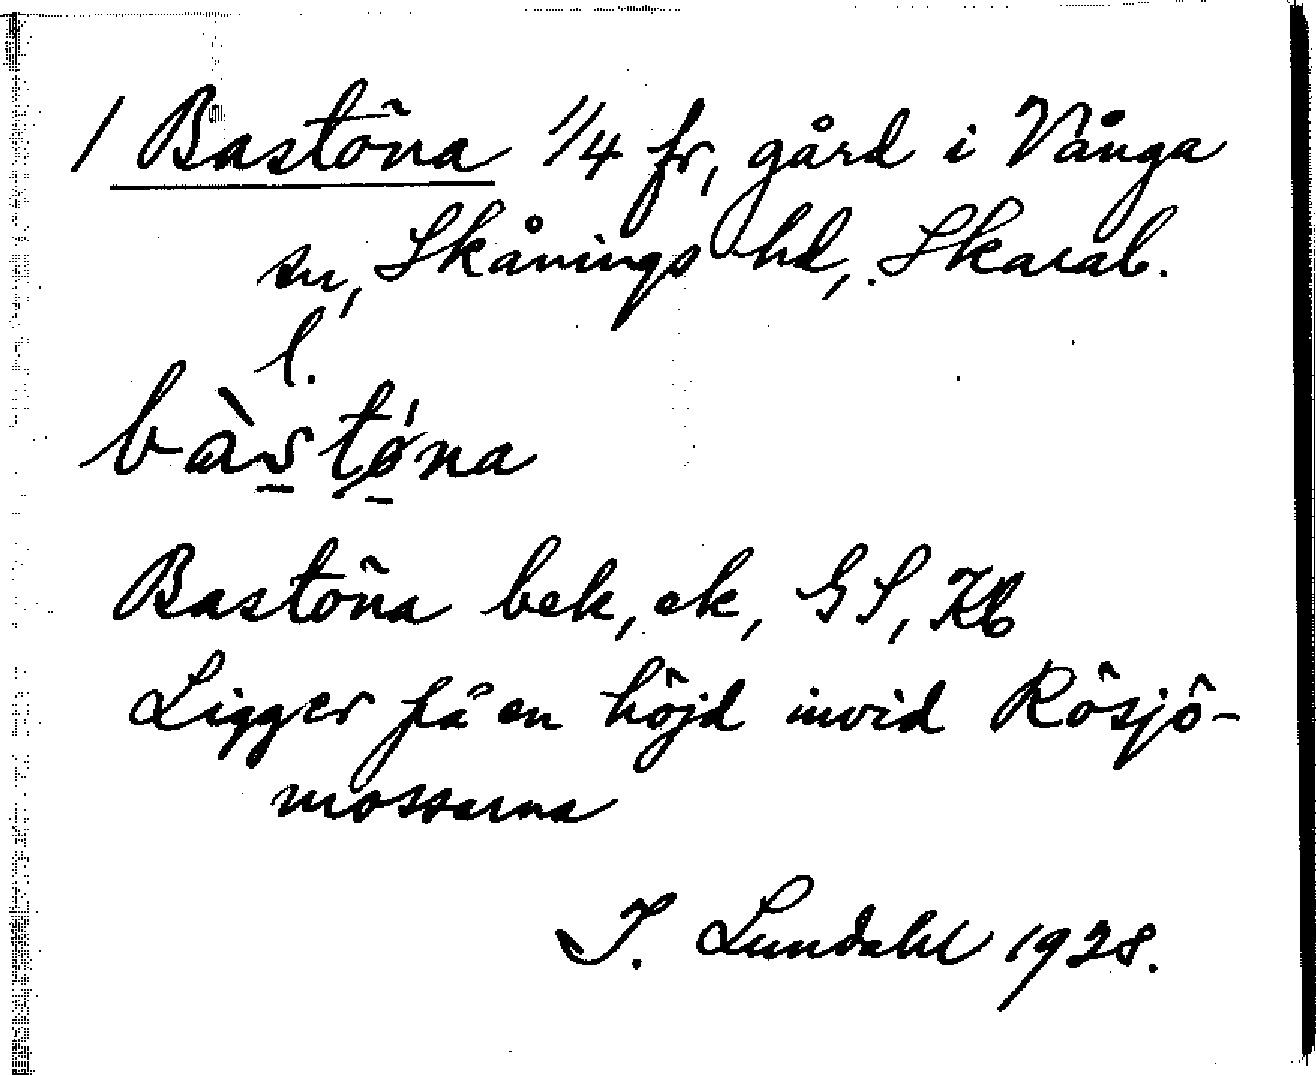 1 Bastöna 1/4 fr, gård i Vånga
sn, Skånings hd, Skarab.
l.
bàstǿna
Bastöna bek, ek, GS, Kb
Ligger på en höjd invid Rösjö-
mossarna
I. Lundahl 1928.